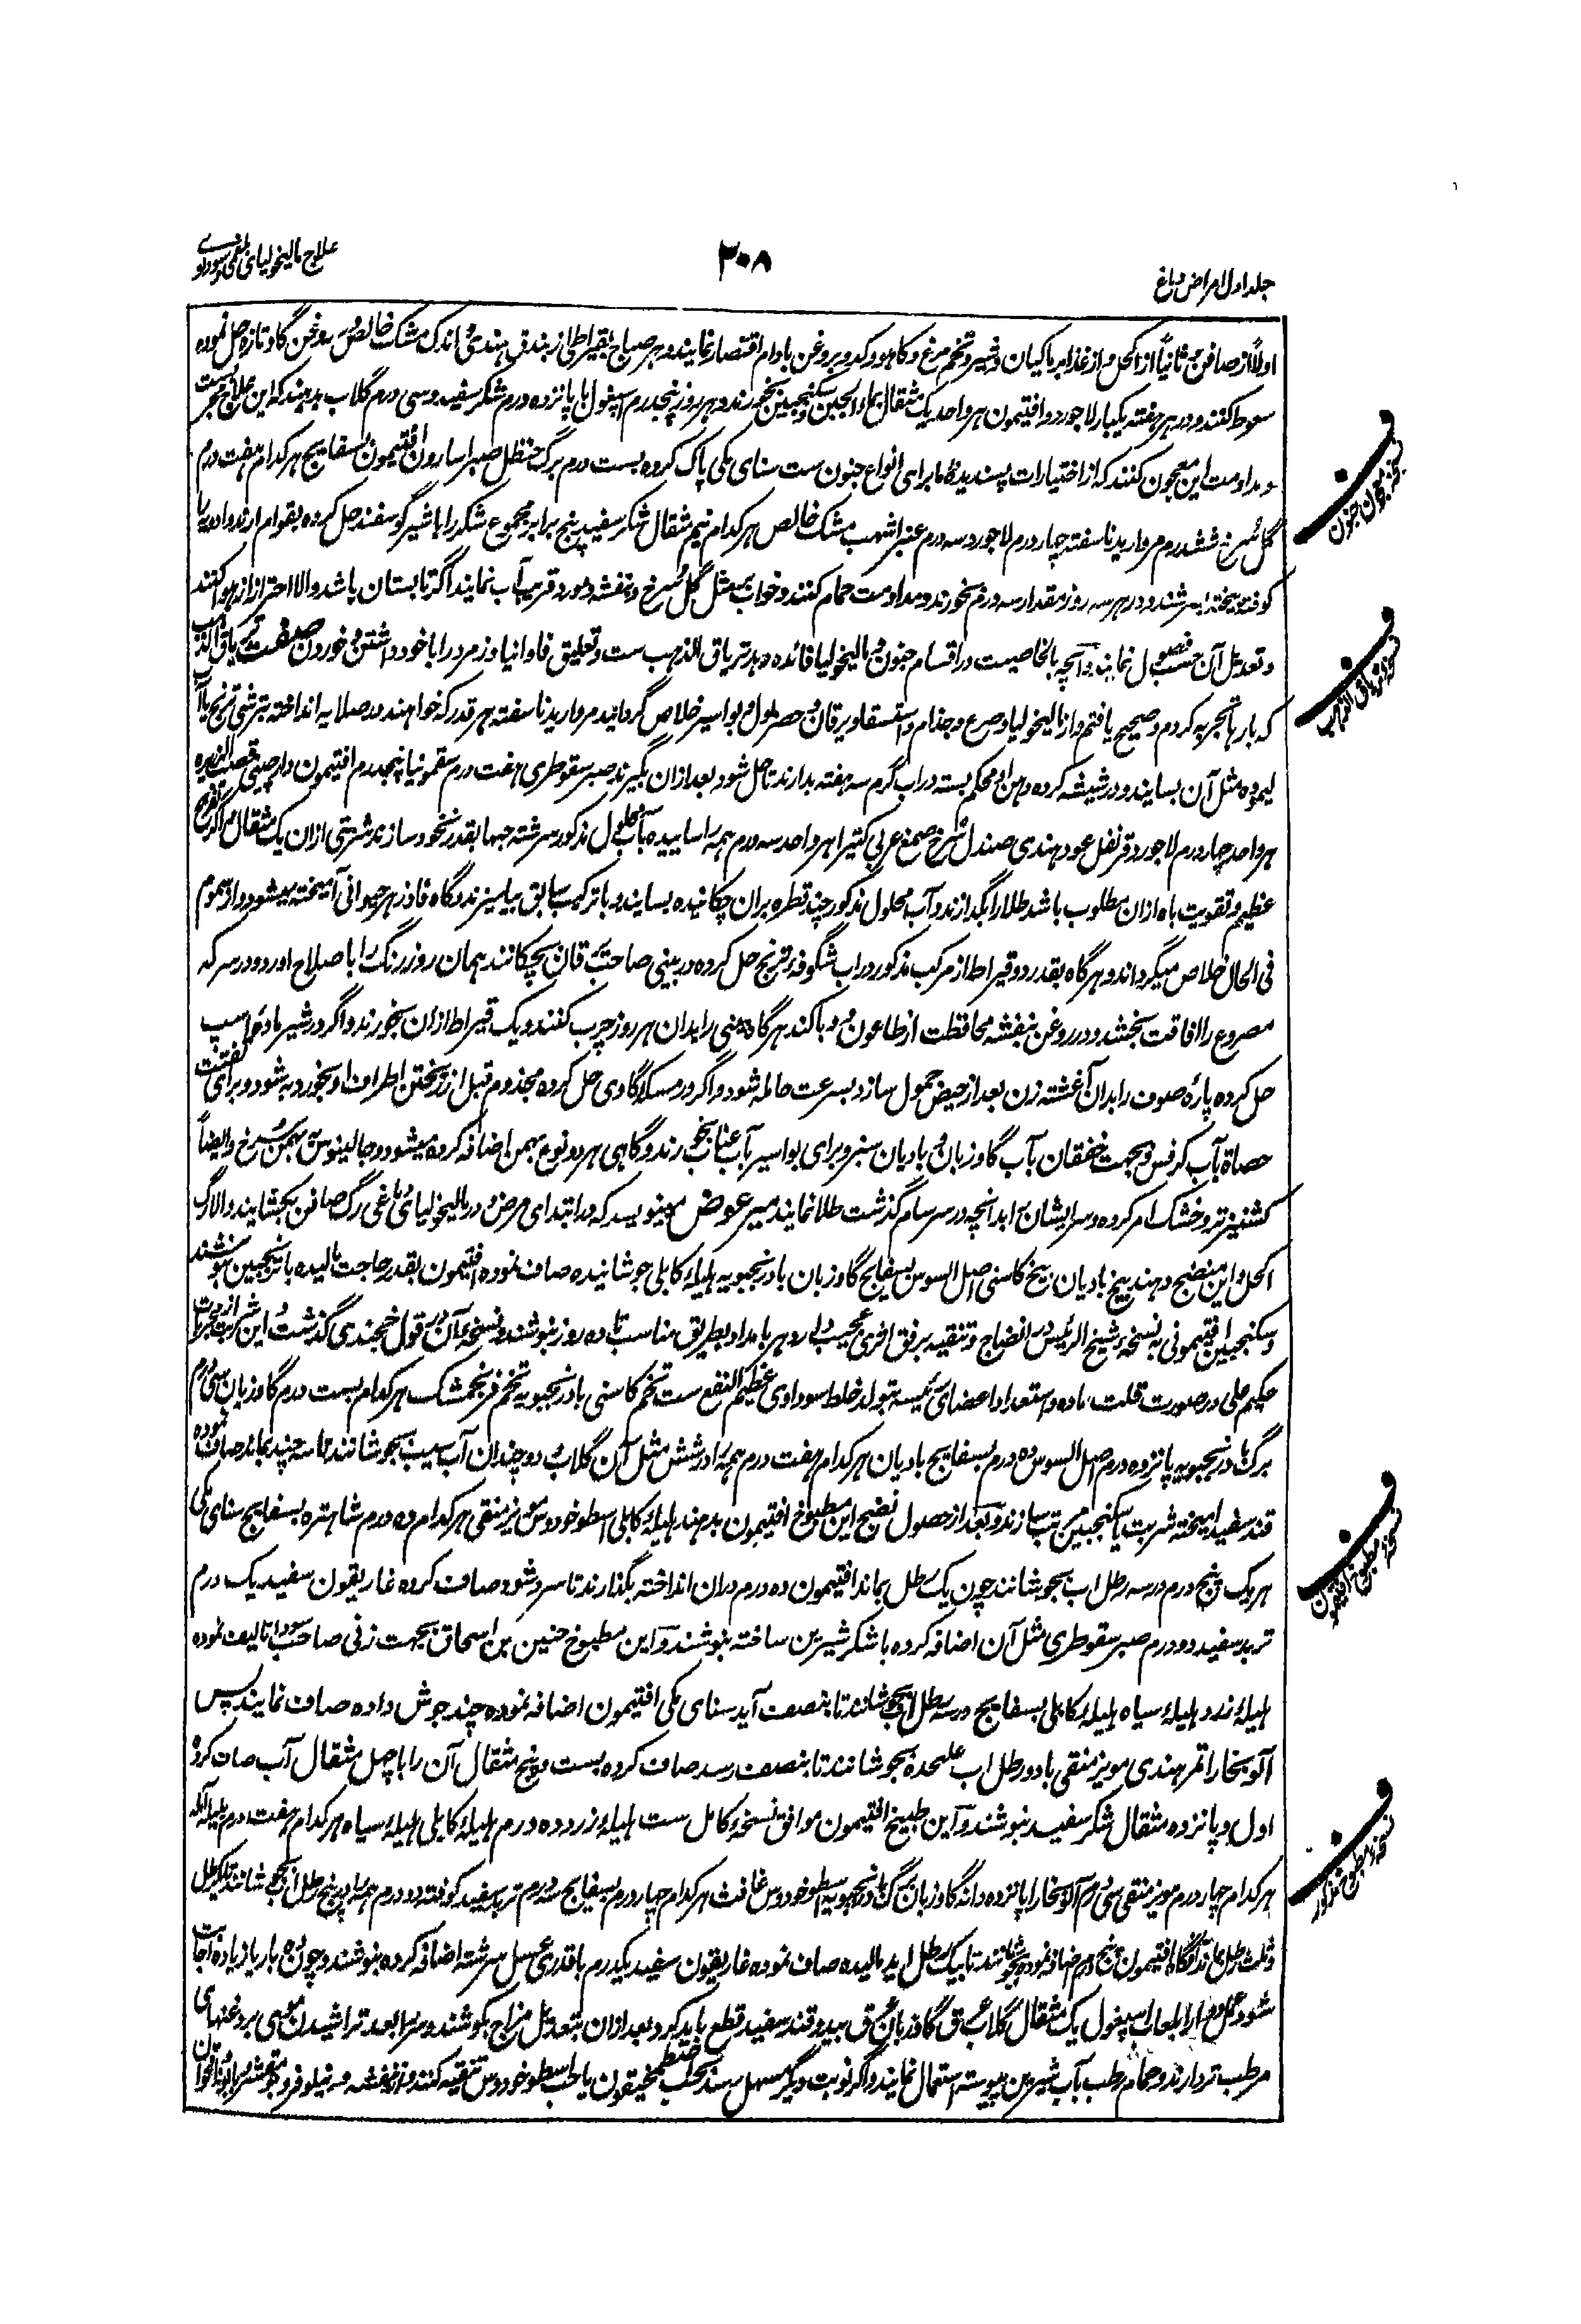 جلد اول امراض دماغ
۳۰۸
علاج مالیخولیای بلغمی و سوداوی
اولاً از صافن و ثانیاً از اکحل و از غذا بر ماکیان و شیر و تخم مرغ و کاهو و کدو بروغن بادام اقتصار نمایند و هر صباح بقیراطی از بندق هندی و اندک مشک خالص بروغن گاو تازه حل نموده
سعوط کنند و در هر هفته یکبار لاجورد و افتیمون هر واحد یک مثقال بماء الجبن و سکنجبین بخورند و هر روز پنجدرم اسپغول با پانزده درم شکر سفید و سی درم گلاب بدهند که این علاج مجرب ست
و مداومت این معجون کنند که از اختیارات پسندیدۀ ما برای انواع جنون ست سنای مکی پاک کرده بست درم برگ حنظل صبر اسارون افتیمون بسفایج هر کدام هفت درم
گل سرخ ششدرم مروارید ناسفته چار درم لاجورد سه درم عنبر اشهب مشک خالص هر کدام نیم مثقال شکر سفید پنج برابر مجموع شکر را با شیر گوسفند حل کرده بقوام آرند و ادویه را
کوفته بیخته بسرشند و در هر سه روز مقدار سه درم بخورند و مداومت حمام کنند و خواب بمثل گل سرخ و بنفشه و مورد قریب آب نمایند اگر تابستان باشد والا احتراز از هوا کنند
و تعدیل آن حسب فصول نمایند و آنچه بالخاصیت در اقسام جنون و مالیخولیا فائده دهد تریاق الذهب ست و تعلیق فاوانیا و زمرد را با خود داشتن و خوردن صفت تریاق الذهب
که بارها تجربه کردم و صحیح یافتم و از مالیخولیا و صرع و جذام و استسقا و یرقان و حصر بول و بواسیر خلاص گرداند مروارید ناسفته هر قدر که خواهند در صلایه انداخته بترشی ترنج یا آب
لیمو مثل آن بسایند و در شیشه کرده دهن او محکم بسته در آب گرم سه هفته بدارند تا حل شود بعد ازان بگیرند صبر سقوطری هفت درم سقمونیا پنجدرم افتیمون دارچینی قصب الذریره
هر واحد چهار درم لاجورد قرنفل عود هندی صندل سرخ صمغ عربی کتیرا هر واحد سه درم همه را ساییده بآب محلول مذکور سرشته حبها بقدر نخود سازند شربتی ازان یک مثقال و اگر تفریح
عظیم و تقویت باه ازان مطلوب باشد طلا را بگدازند و آب محلول مذکور چند قطره بران چکانیده بسایند و با ترکیب سابق بیامیزند و گاه فادزهر حیوانی آمیخته میشود و از سموم
فی الحال خلاص میگرداند و هرگاه بقدر دو قیراط از مرکب مذکور در آب شگوفۀ ترنج حل کرده در بینی صاحب یرقان بچکانند همان روز رنگ را باصلاح آورد و در سرکه
مصروع را افاقت بخشد و در روغن بنفشه محافظت از طاعون و وبا کند هرگاه بینی را بدان هر روز چرب کنند و یک قیراط ازان بخورند و اگر در شیر مادیان اسپ
حل کرده پارۀ صوف را بدان آغشته زن بعد از حیض حمول سازد بسرعت حامله شود و اگر در مسکۀ گاوی حل کرده مجذوم قبل از ریختن اطراف او بخورد به شود و برای تفتت
حصاة بآب کرفس و بجهت خفقان بآب گاوزبان و بادیان سبز و برای بواسیر بآب عناب بخورند و گاهی هر دو نوع بهمن اضافه کرده میشود و جالینوس بهمن سرخ و ایضاً
کشنیز تر و خشک امر کرده و سر ایشان بآنچه در سرسام گذشت طلا نمایند میر عوض مینویسد که در ابتدای مرض در مالیخولیای دماغی رگ صافن بکشایند والا رگ
اکحل و این منضج دهند بیخ بادیان بیخ کاسنی اصل السوس بسفایج گاوزبان بادرنجبویه هلیلۀ کابلی جوشانیده صاف نموده افتیمون بقدر حاجت مالیده با ترنجبین بنوشند
و سکنجبین افتیمونی به نسخۀ شیخ الرئیس در انضاج و تنقیه برفق اثری عجیب دارد هر بامداد بطریق مناسب تا ده روز بنوشند و نسخۀ آن در قول خجندی گذشت و این شربت از مجربات
حکیم علی در صورت قلت ماده و استعداد اعضای رئیسه بتولد خلط سوداوی عظیم النفع ست تخم کاسنی بادرنجبویه تخم فرنجمشک هر کدام بست درم گاوزبان سی درم
برگ بادرنجبویه پانزده درم اصل السوس ده درم بسفایج بادیان هر کدام هفت درم همه را در شش مثل آن گلاب و دو چندان آب سیب بجوشانند تا سه چند بماند صاف نموده
قند سفید آمیخته شربت یا سکنجبین مرتب سازند و بعد از حصول نضج این مطبوخ افتیمون بدهند هلیلۀ کابلی اسطوخودوس مویز منقی هر کدام ده درم شاهتره بسفایج سنای مکی
هر یک پنج درم در سه رطل آب بجوشانند چون یک رطل بماند افتیمون ده درم دران انداخته بگذارند تا سرد شود و صاف کرده غاریقون سفید یک درم
تربد سفید دو درم صبر سقوطری مثل آن اضافه کرده با شکر شیرین ساخته بنوشند و این مطبوخ حنین بن اسحاق بجهت زنی صاحب سودا تالیف نموده
هلیلۀ زرد هلیلۀ سیاه هلیلۀ کابلی بسفایج در سه رطل آب بجوشانند تا بنصف آید سنای مکی افتیمون اضافه نموده چند جوش داده صاف نمایند پس
آلو بخارا تمر هندی مویز منقی با دو رطل آب علیحده بجوشانند تا بنصف رسد صاف کرده بست و پنج مثقال آن را با چهل مثقال آب صاف کردۀ
اول و پانزده مثقال شکر سفید بنوشند و این طبیخ افتیمون موافق نسخۀ کامل ست هلیلۀ زرد ده درم هلیلۀ کابلی هلیلۀ سیاه هر کدام هفت درم بلیله آمله
هر کدام چهار درم مویز منقی سی درم آلو بخارا پانزده دانه گاوزبان برگ بادرنجبویه اسطوخودوس غافث هر کدام چهار درم بسفایج سه درم تربد سفید کوفته دو درم همه را در پنج رطل آب بجوشانند تا یکرطل
و ثلث رطل بماند آنگاه افتیمون پنج درم اضافه نموده بجوشانند تا بیک رطل آید مالیده صاف نموده غاریقون سفید یکدرم با قدری عسل سرشته اضافه کرده بنوشند و چون ده بار یا زیاده اجابت
شود عمل دوا را بلعاب اسپغول یک مثقال گلاب عرق گاوزبان عرق بید و قند سفید قطع باید کرد و بعد ازان بتعدیل مزاج بکوشند و سر را بعد تراشیدن موی بروغنهای
مرطب تر دارند و حمام رطب بآب شیرین پیوسته استعمال نمایند و اگر نوبت دیگر مسهل رسد بحب اصطمخیقون یا حب اسطوخودوس تنقیه کنند و از بنفشه و نیلوفر
نسخۀ معجون جنون
نسخۀ تریاق الذهب
نسخۀ مطبوخ افتیمون
نسخۀ مطبوخ مذکور